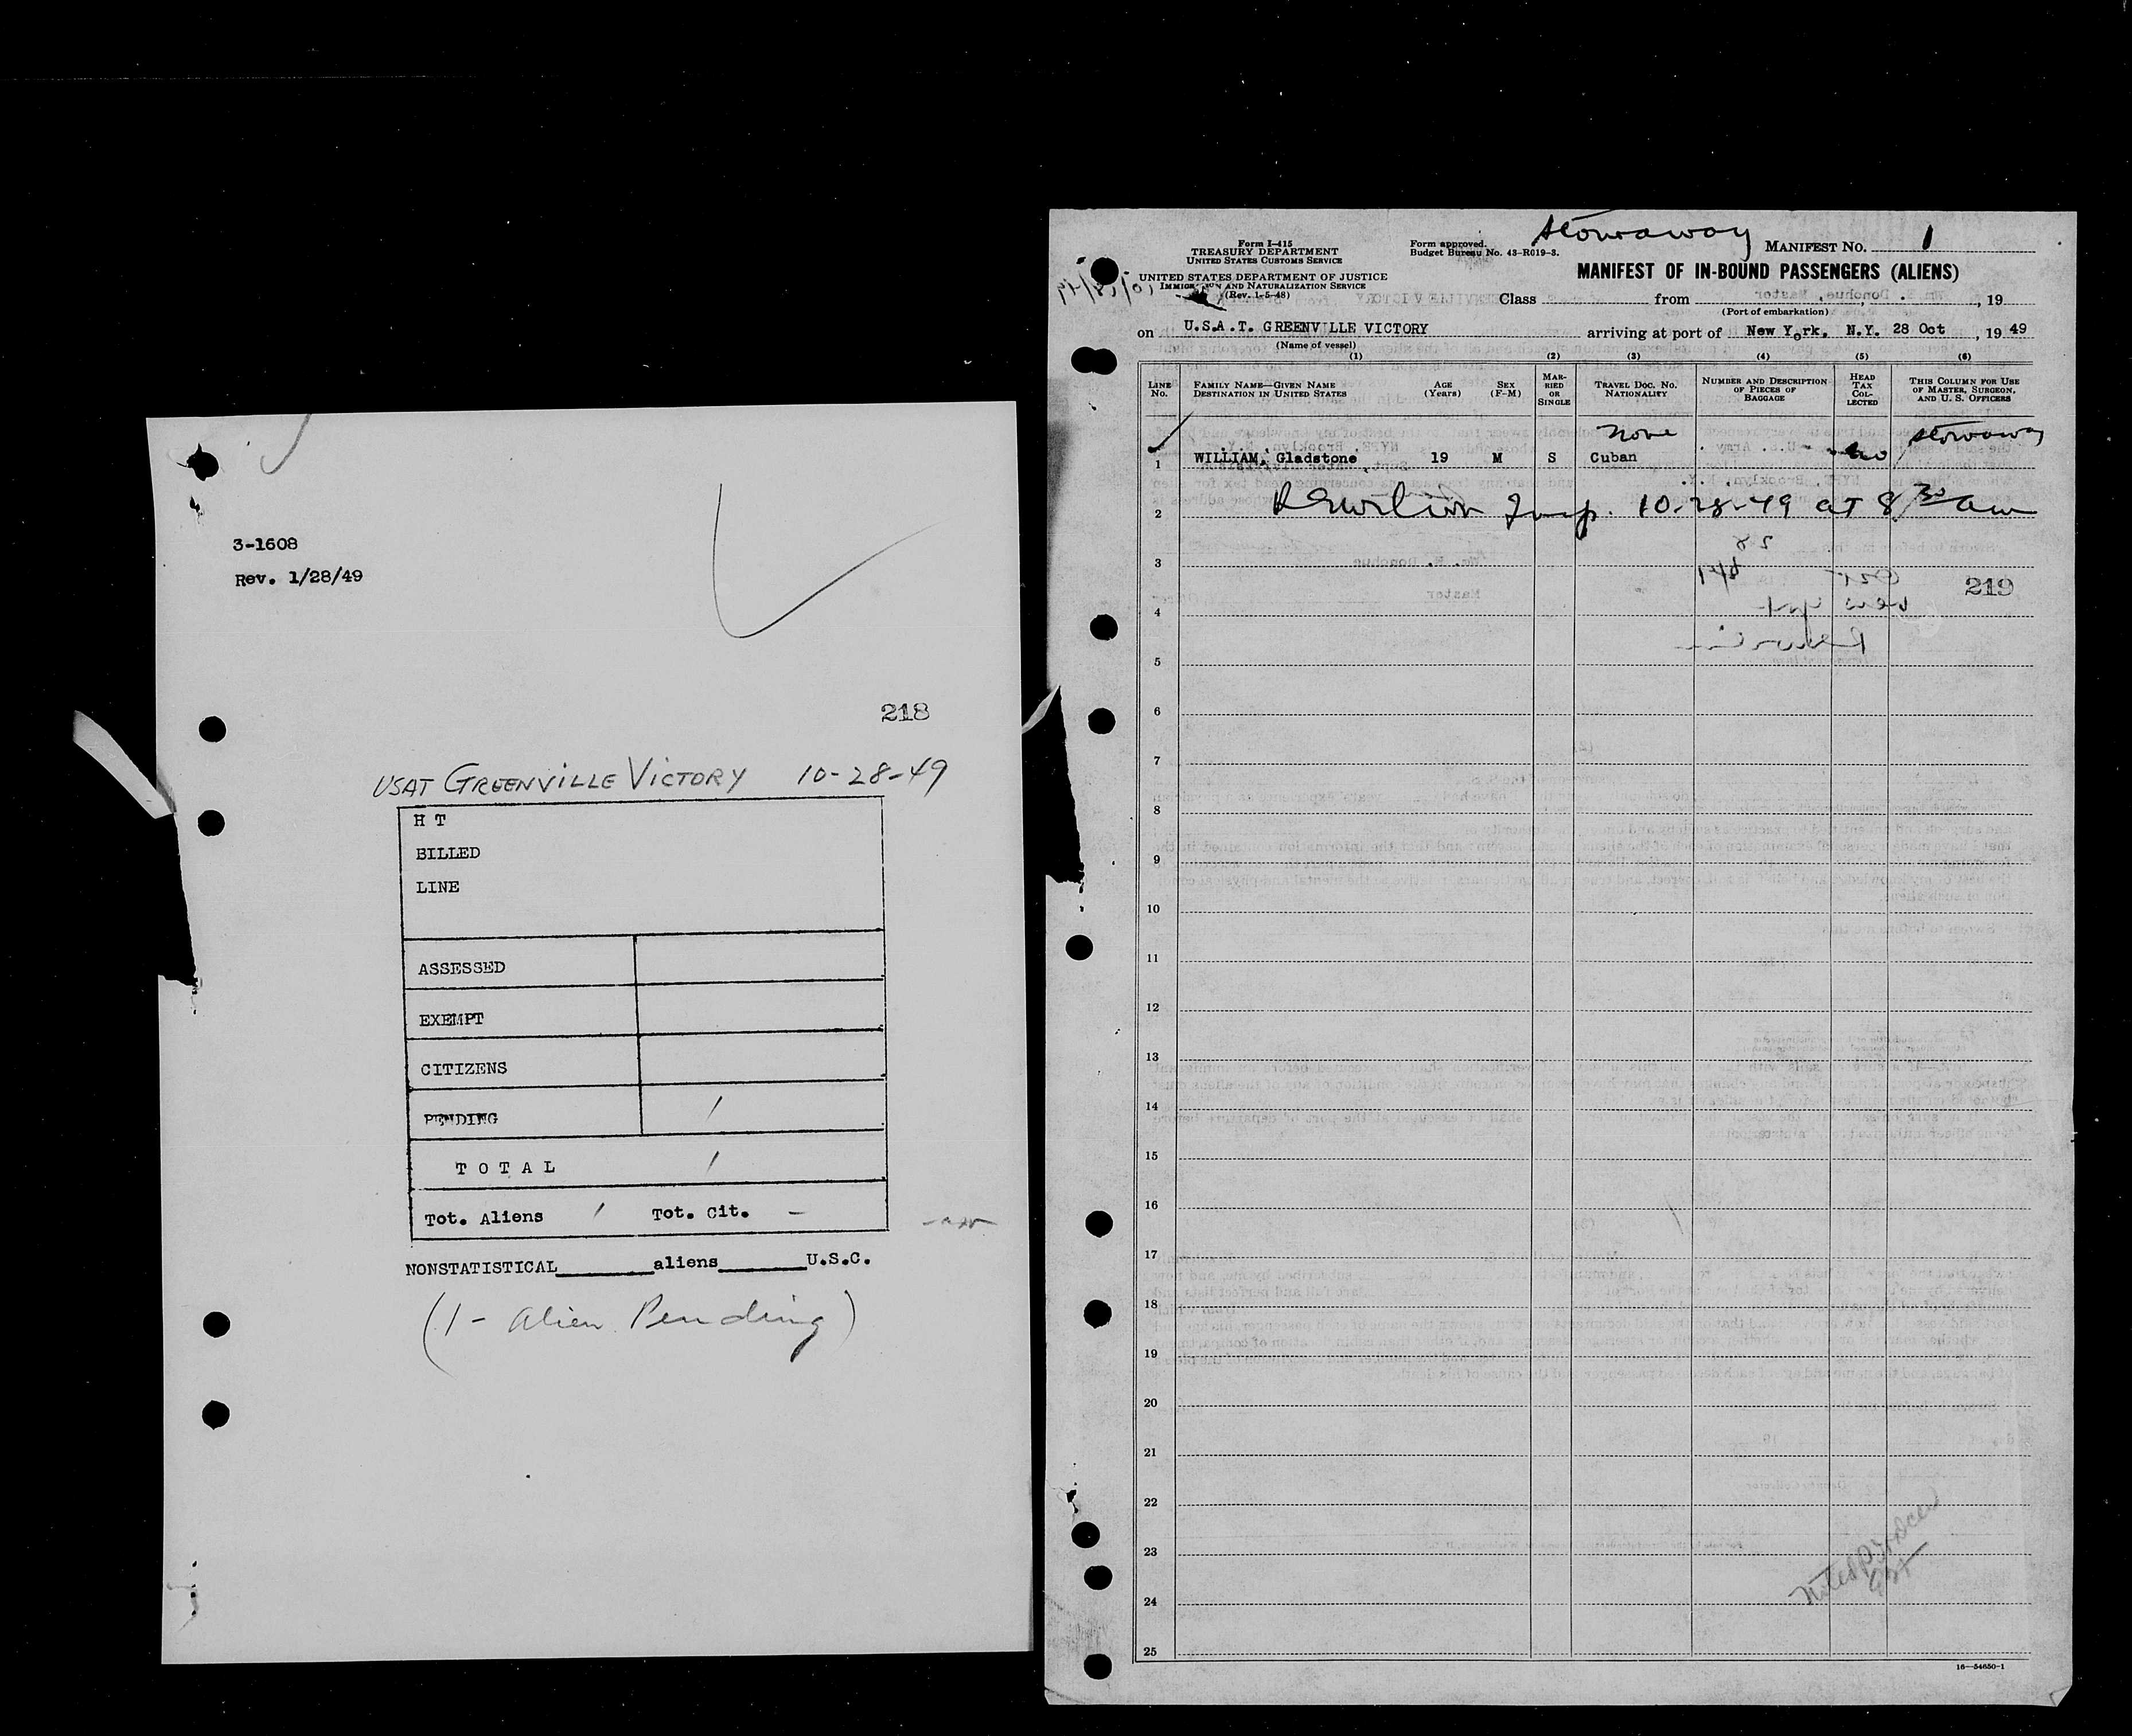 3-1608
Rev. 1/28/49
218
USAT GREENVILLE VICTORY 10-28-49
H T
BILLED
LINE
ASSESSED
EXEMPT
CITIZENS
PENDING /
T O T A L /
Tot. Aliens / Tot. Cit. -
NONSTATISTICAL________aliens________U.S.C.
(1 - Alien Pending)
Stowaway
Form I-415
TREASURY DEPARTMENT
UNITED STATES CUSTOMS SERVICE
UNITED STATES DEPARTMENT OF JUSTICE
IMMIGRATION AND NATURALIZATION SERVICE
(Rev. 1-5-48)
Form approved.
Budget Bureau No. 43-R019-3.
MANIFEST NO. 1
MANIFEST OF IN-BOUND PASSENGERS (ALIENS)
Class from , , 19
(Port of embarkation)
on U.S.A.T. GREENVILLE VICTORY arriving at port of New York, N.Y. 28 Oct , 19 49
(Name of vessel)
(1) (2) (3) (4) (5) (6)
LINE NO.
FAMILY NAME—GIVEN NAME
DESTINATION IN UNITED STATES
AGE (Years)
SEX (F-M)
MARRIED OR SINGLE
TRAVEL DOC. NO.
NATIONALITY
NUMBER AND DESCRIPTION OF PIECES OF BAGGAGE
HEAD TAX COLLECTED
THIS COLUMN FOR USE OF MASTER, SURGEON, AND U. S. OFFICERS
None
stowaway
1 WILLIAM, Gladstone 19 M S Cuban no
2 Insp. 10-28-49 at 8:30 am
3
219
4
5
6
7
8
9
10
11
12
13
14
15
16
17
18
19
20
21
22
23
24
25
16—54650-1